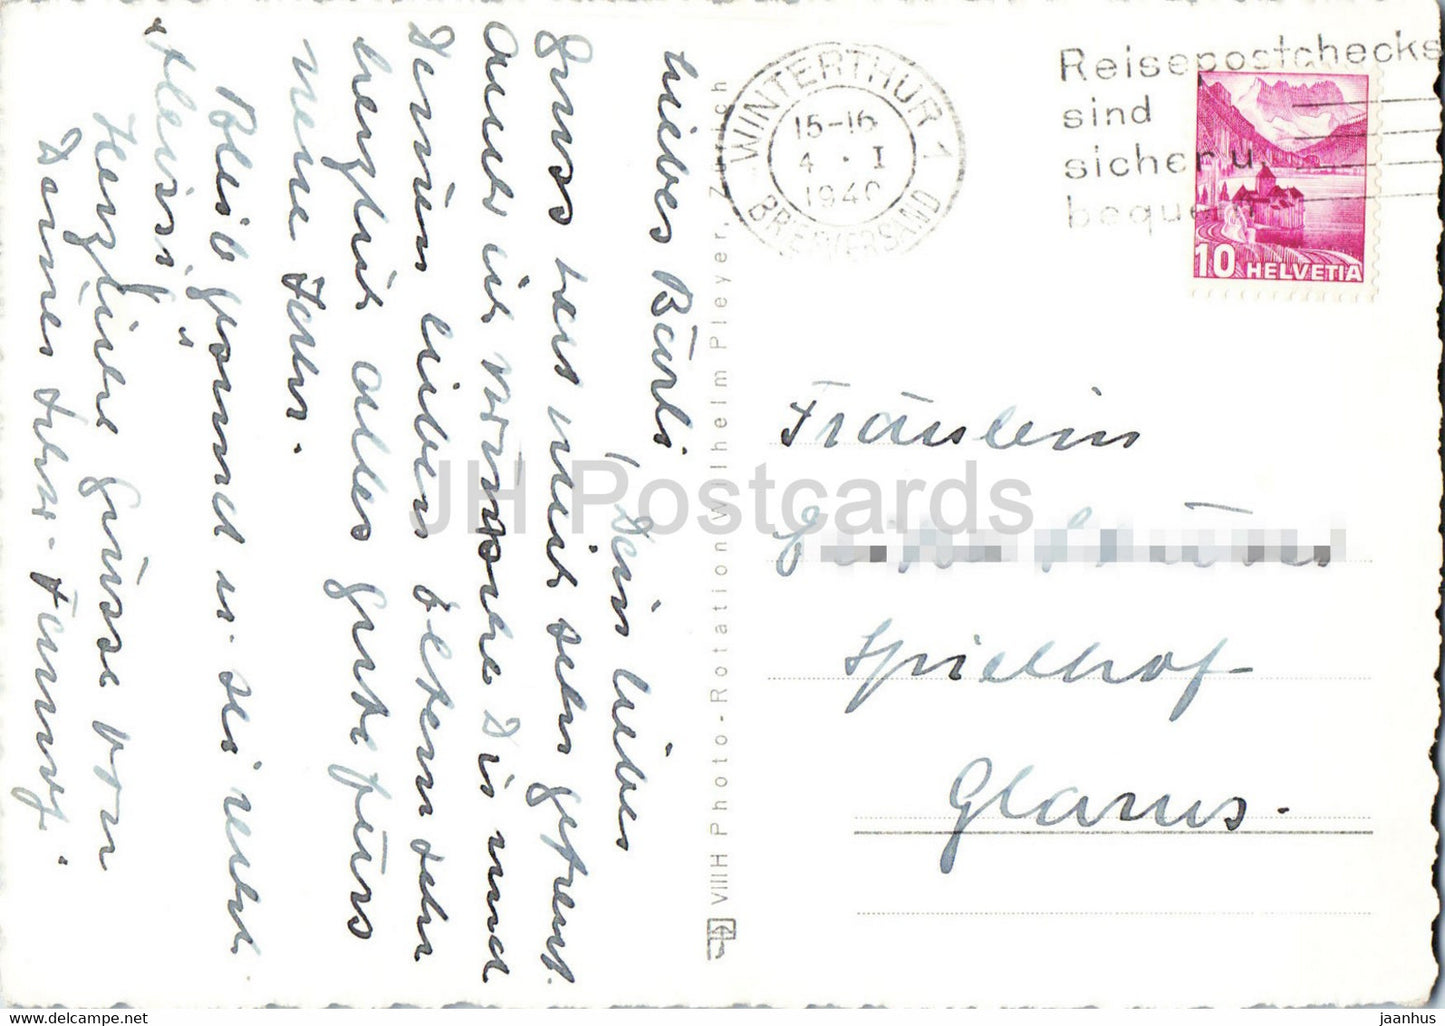 Liebes Bärli,
Dein liebes
Gruss hat mich sehr gefreut.
Auch ich wünsche Dir und
Deinen lieben Eltern sehr
herzlich alles Gute fürs
neue Jahr.
Bleib gesund u. sei recht
fleissig!
Herzliche Grüsse von
Deines
VIIIH Photo-Rotation Wilhelm Pleyer, Zürich
WINTERTHUR 1
15-16
4 · I
1940
BRIEFVERSAND
Reisepostchecks
sind
sicher u.
bequem
10 HELVETIA
Fräulein
Spielhof
Glarus.
JH Postcards
www.jhpostcard.com
jaanhus